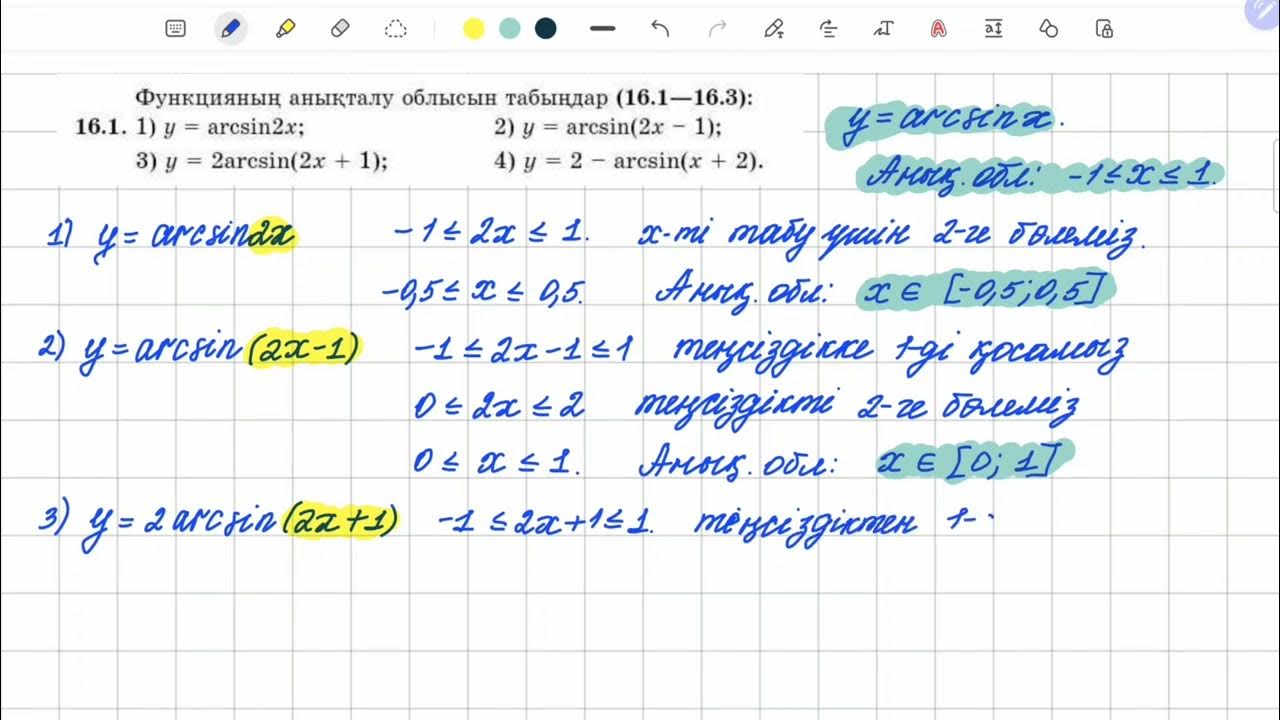 Функцияның анықталу облысын табыңдар (16.1—16.3):
16.1. 1) y = arcsin2x; 2) y = arcsin(2x − 1);
3) y = 2arcsin(2x + 1); 4) y = 2 − arcsin(x + 2).
y = arcsin x.
Анық. обл: -1 ≤ x ≤ 1.
1) y = arcsin2x -1 ≤ 2x ≤ 1. x-ті табу үшін 2-ге бөлеміз.
-0,5 ≤ x ≤ 0,5. Анық. обл: x ∈ [-0,5; 0,5]
2) y = arcsin (2x-1) -1 ≤ 2x-1 ≤ 1 теңсіздікке 1-ді қосамыз
0 ≤ 2x ≤ 2 теңсіздікті 2-ге бөлеміз
0 ≤ x ≤ 1. Анық. обл: x ∈ [0; 1]
3) y = 2 arcsin (2x+1) -1 ≤ 2x+1 ≤ 1. теңсіздіктен 1-